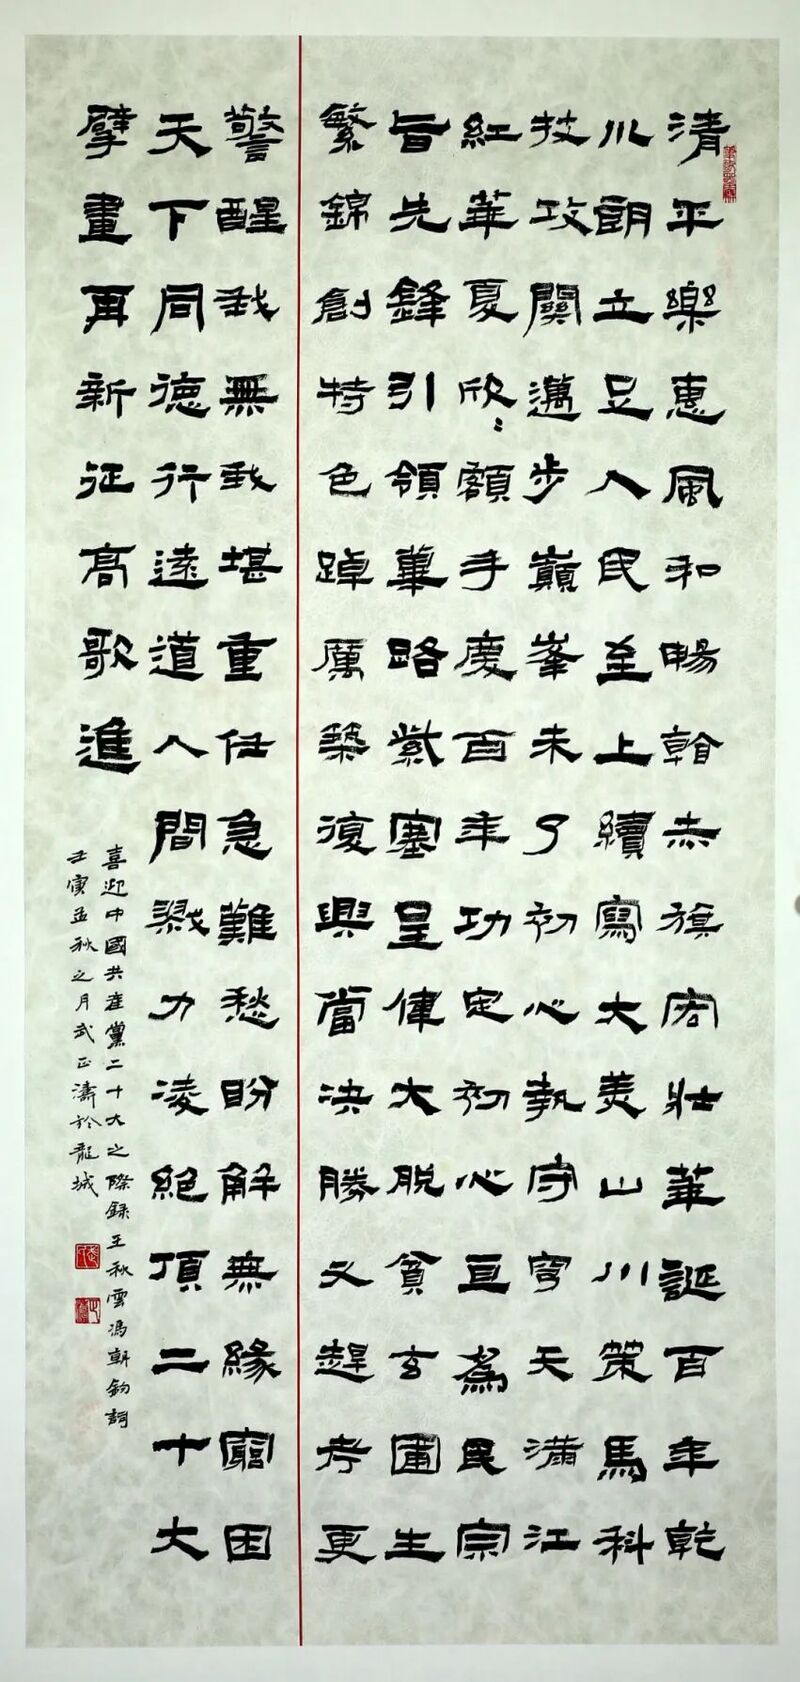 清平樂惠風和暢翰赤旗宏壯華誕百年乾
川朗立足人民至上續寫大美山川策馬科
技攻關邁步巔峯未了初心執守穹天滿江
紅華夏欣〻額手慶百年功定初心亘為民宗
旨先鋒引領蓽路紫塞呈偉大脫貧玄圃生
繁錦創特色踔厲築復興當決勝又趕考更
警醒我無我堪重任急難愁盼解無緣窮困
天下同德行遠道人間戮力凌絕頂二十大
擘畫再新征高歌進
喜迎中國共產黨二十大之際錄王秋雲馮朝鈞詞
壬寅孟秋之月武正濤於龍城